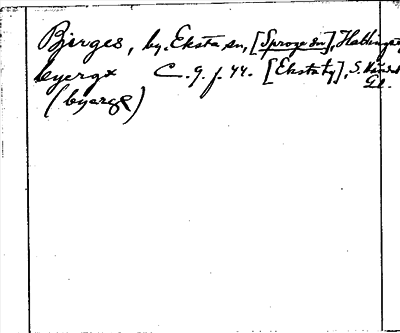 Bjerges, by. Eksta sn, [Sproge sn], Hablinge
byergx C. 9. f. 44. [Eksta tg], S.
(byergε) Gl.